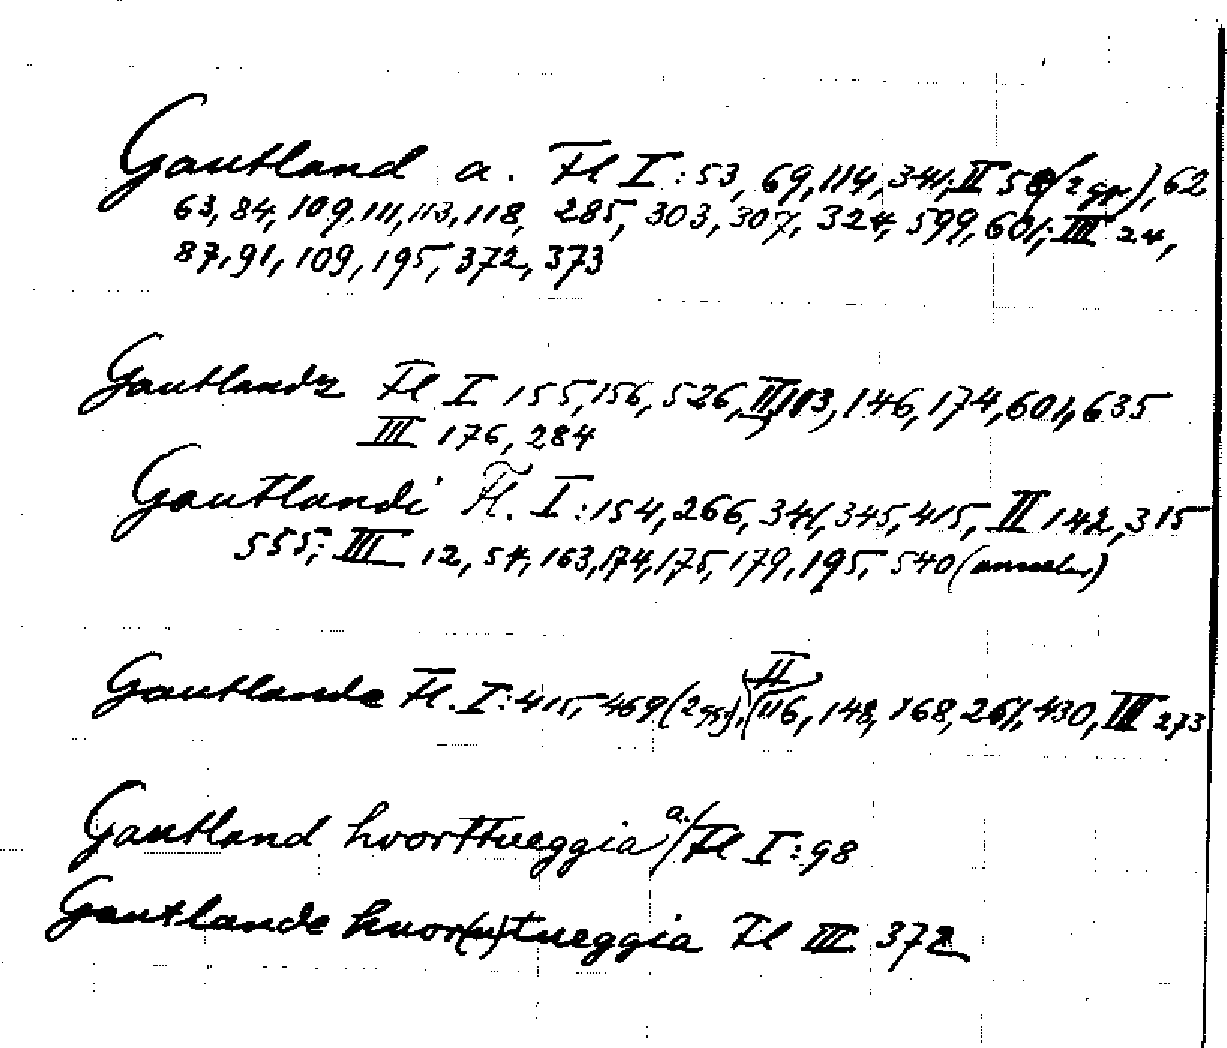 Gautland a. Fl I: 53, 69, 114, 341, II 58 (2 gr.), 62
63, 84, 109, 111, 113, 118, 285, 303, 307, 324, 599, 601; III 24,
87, 91, 109, 195, 372, 373
Gautlandz Fl I 155, 156, 526, II, 103, 146, 174, 601, 635
III 176, 284
Gautlandi Fl. I: 154, 266, 341, 345, 415, II 142, 315
555; III 12, 54, 163, 174, 175, 179, 195, 540
Gautlande Fl. I: 415, 469 II 116, 148, 168, 261, 430, III 273
Gautland hvorttueggia a. / Fl I: 98
Gautlande huor(u)tueggia Fl III 372